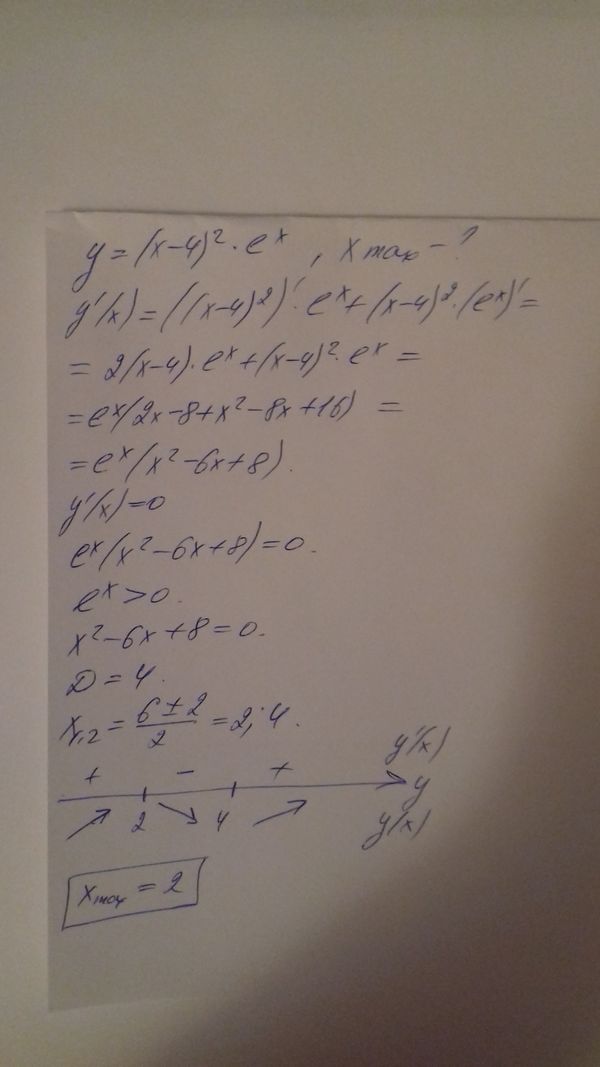 y = (x-4)² · eˣ , x max - ?
y'(x) = ((x-4)²)' · eˣ + (x-4)² · (eˣ)' =
= 2(x-4) · eˣ + (x-4)² · eˣ =
= eˣ(2x-8+x²-8x+16) =
= eˣ(x²-6x+8).
y'(x)=0
eˣ(x²-6x+8)=0.
eˣ>0.
x²-6x+8=0.
D = 4.
x₁,₂ = (6±2)/2 = 2; 4.
y'(x)
+ - +
2 4 y
y(x)
x max = 2